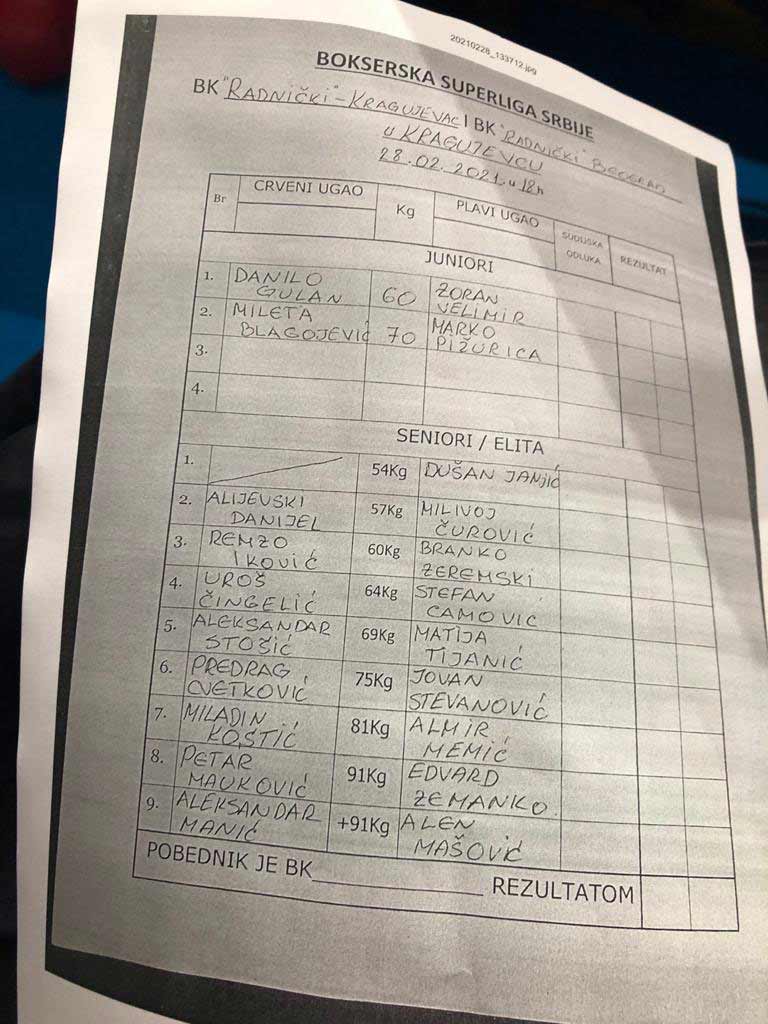 20210228_133712.jpg
BOKSERSKA SUPERLIGA SRBIJE
BK "RADNIČKI"-KRAGUJEVAC I BK "RADNIČKI BEOGRAD
U KRAGUJEVCU
28.02.2021. u 18h
Br CRVENI UGAO Kg PLAVI UGAO SUDIJSKA ODLUKA REZULTAT
JUNIORI
1. DANILO GULAN 60 ZORAN VELIMIR
2. MILETA BLAGOJEVIĆ 70 MARKO PIŽURICA
3.
4.
SENIORI / ELITA
1. 54Kg DUŠAN JANJIĆ
2. ALIJEVSKI DANIJEL 57Kg MILIVOJ ČUROVIĆ
3. REMZO IKOVIĆ 60Kg BRANKO ZEREMSKI
4. UROŠ ČINGELIĆ 64Kg STEFAN CAMOVIC
5. ALEKSANDAR STOŠIĆ 69Kg MATIJA TIJANIĆ
6. PREDRAG CVETKOVIĆ 75Kg JOVAN STEVANOVIĆ
7. MILADIN KOSTIĆ 81Kg ALMIR MEMIĆ
8. PETAR 91Kg EDVARD ZEMANKO
9. ALEKSANDAR MANIĆ +91Kg ALEN MAŠOVIĆ
POBEDNIK JE BK_______________ REZULTATOM